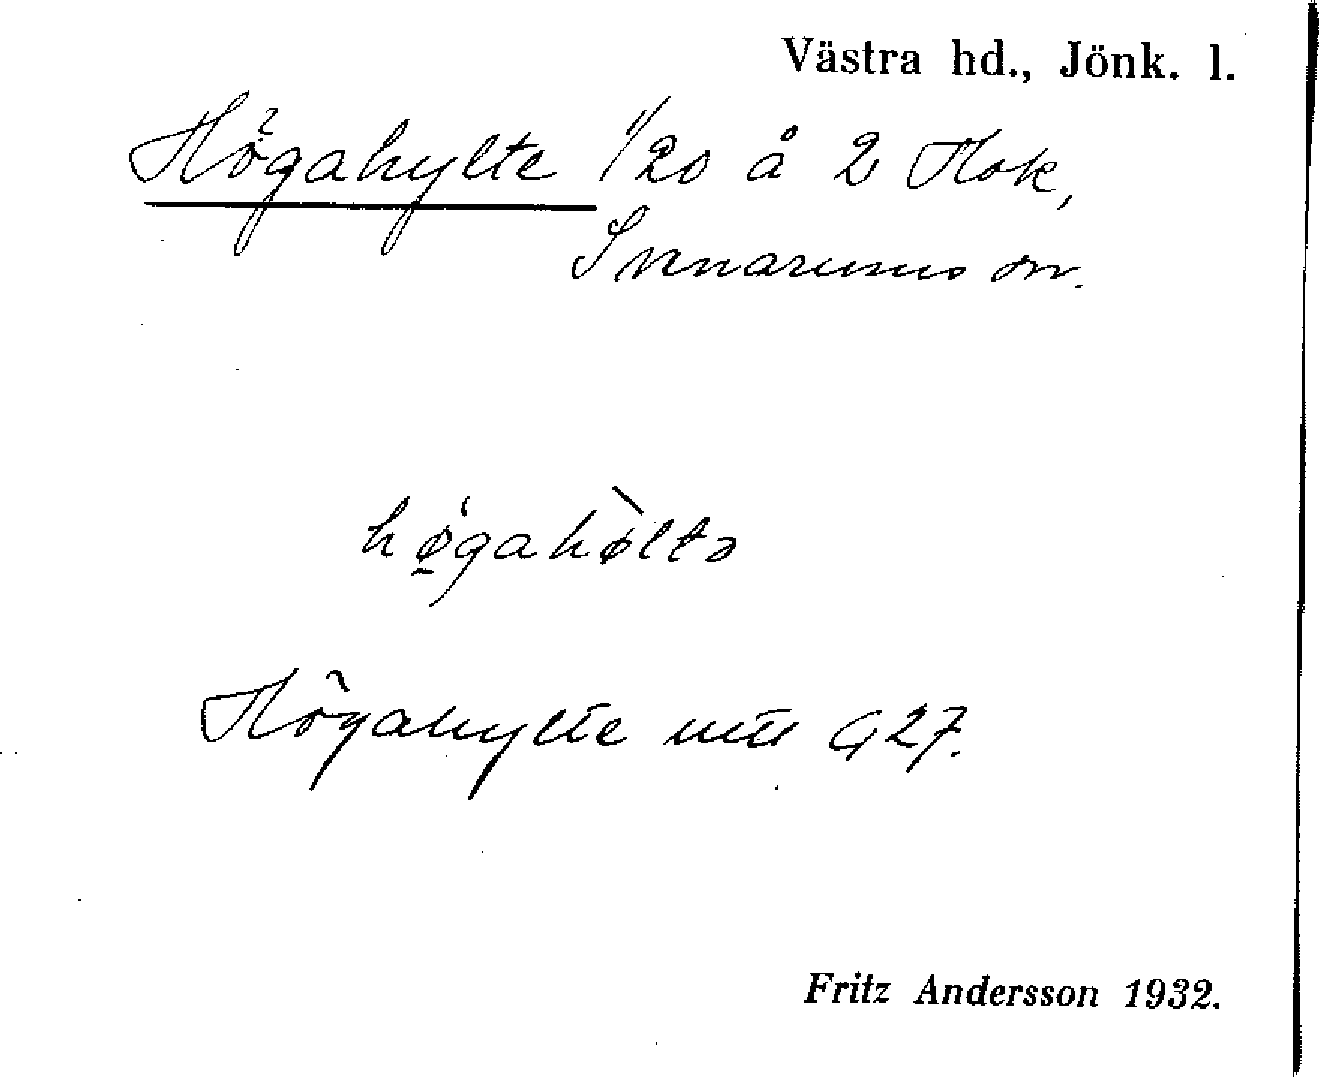 Västra hd., Jönk. l.
Högahylte 1/20 å 2 Hok,
Svenarums sn.
høgahøltə
Högahylte G 27.
Fritz Andersson 1932.